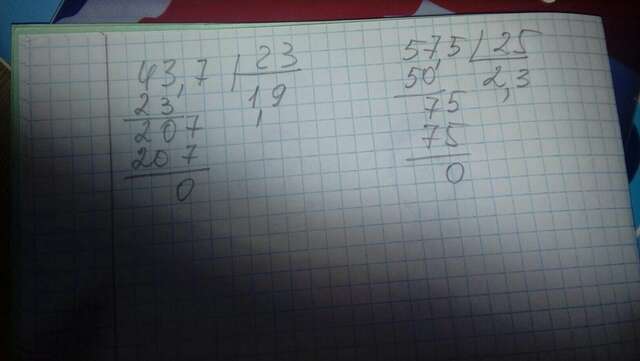 43,7 | 23
23
1,9
207
207
0
57,5 | 25
50
2,3
75
75
0